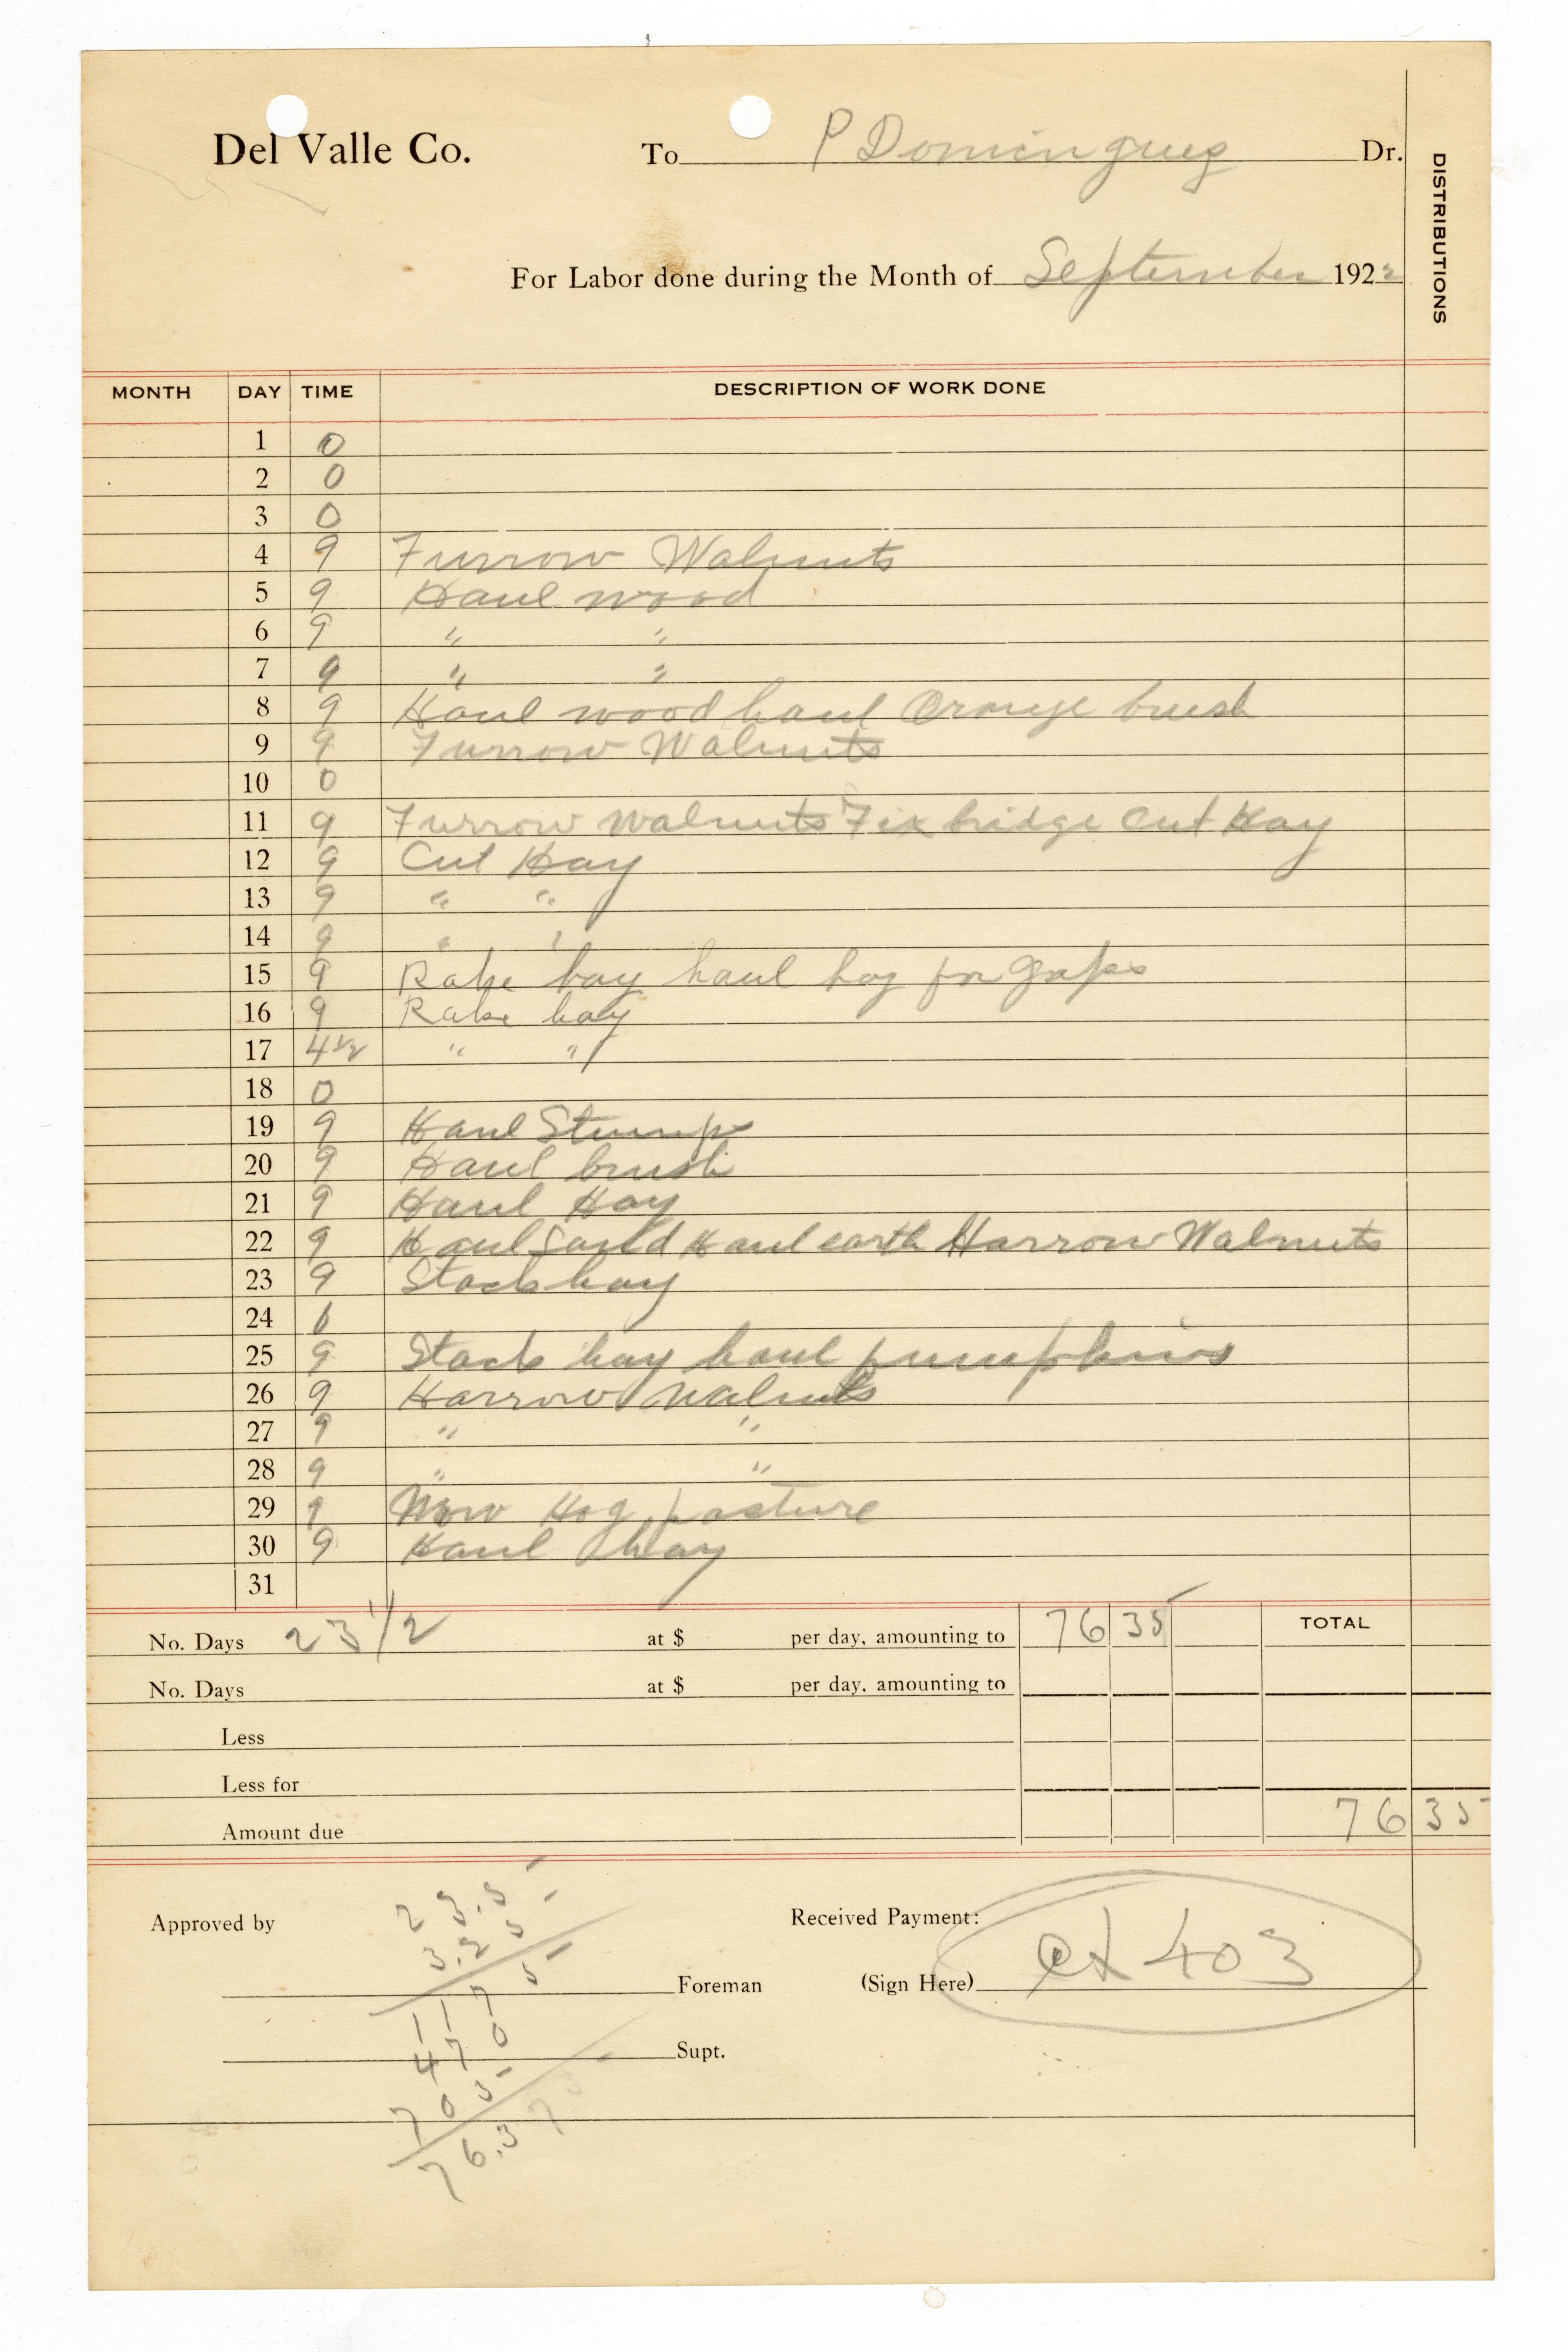 Del Valle Co. To P Dominguez Dr.
DISTRIBUTIONS
For Labor done during the Month of September 1922
MONTH DAY TIME DESCRIPTION OF WORK DONE
1 0
2 0
3 0
4 9 Furrow Walnuts
5 9 Haul wood
6 9 " "
7 9 " "
8 9 Haul wood haul Orange brush
9 9 Furrow Walnuts
10 0
11 9 Furrow Walnuts Fix bridge Cut Hay
12 9 Cut Hay
13 9 " "
14 9 " "
15 9 Rake hay haul hay for
16 9 Rake hay
17 4 1/2 " "
18 0
19 9 Haul Stumps
20 9 Haul brush
21 9 Haul Hay
22 9 Haul Sand Haul earth Harrow Walnuts
23 9 Stack hay
24 0
25 9 Stack hay haul pumpkins
26 9 Harrow Walnuts
27 9 " "
28 9 " "
29 9 Mow Hog pasture
30 9 Haul hay
31
No. Days 23 1/2 at $ per day, amounting to 76 35 TOTAL
No. Days at $ per day, amounting to
Less
Less for
Amount due 76 35
Approved by
Received Payment:
Foreman
(Sign Here) 403
Supt.
23.5
3.25
1175
470
705
76.375